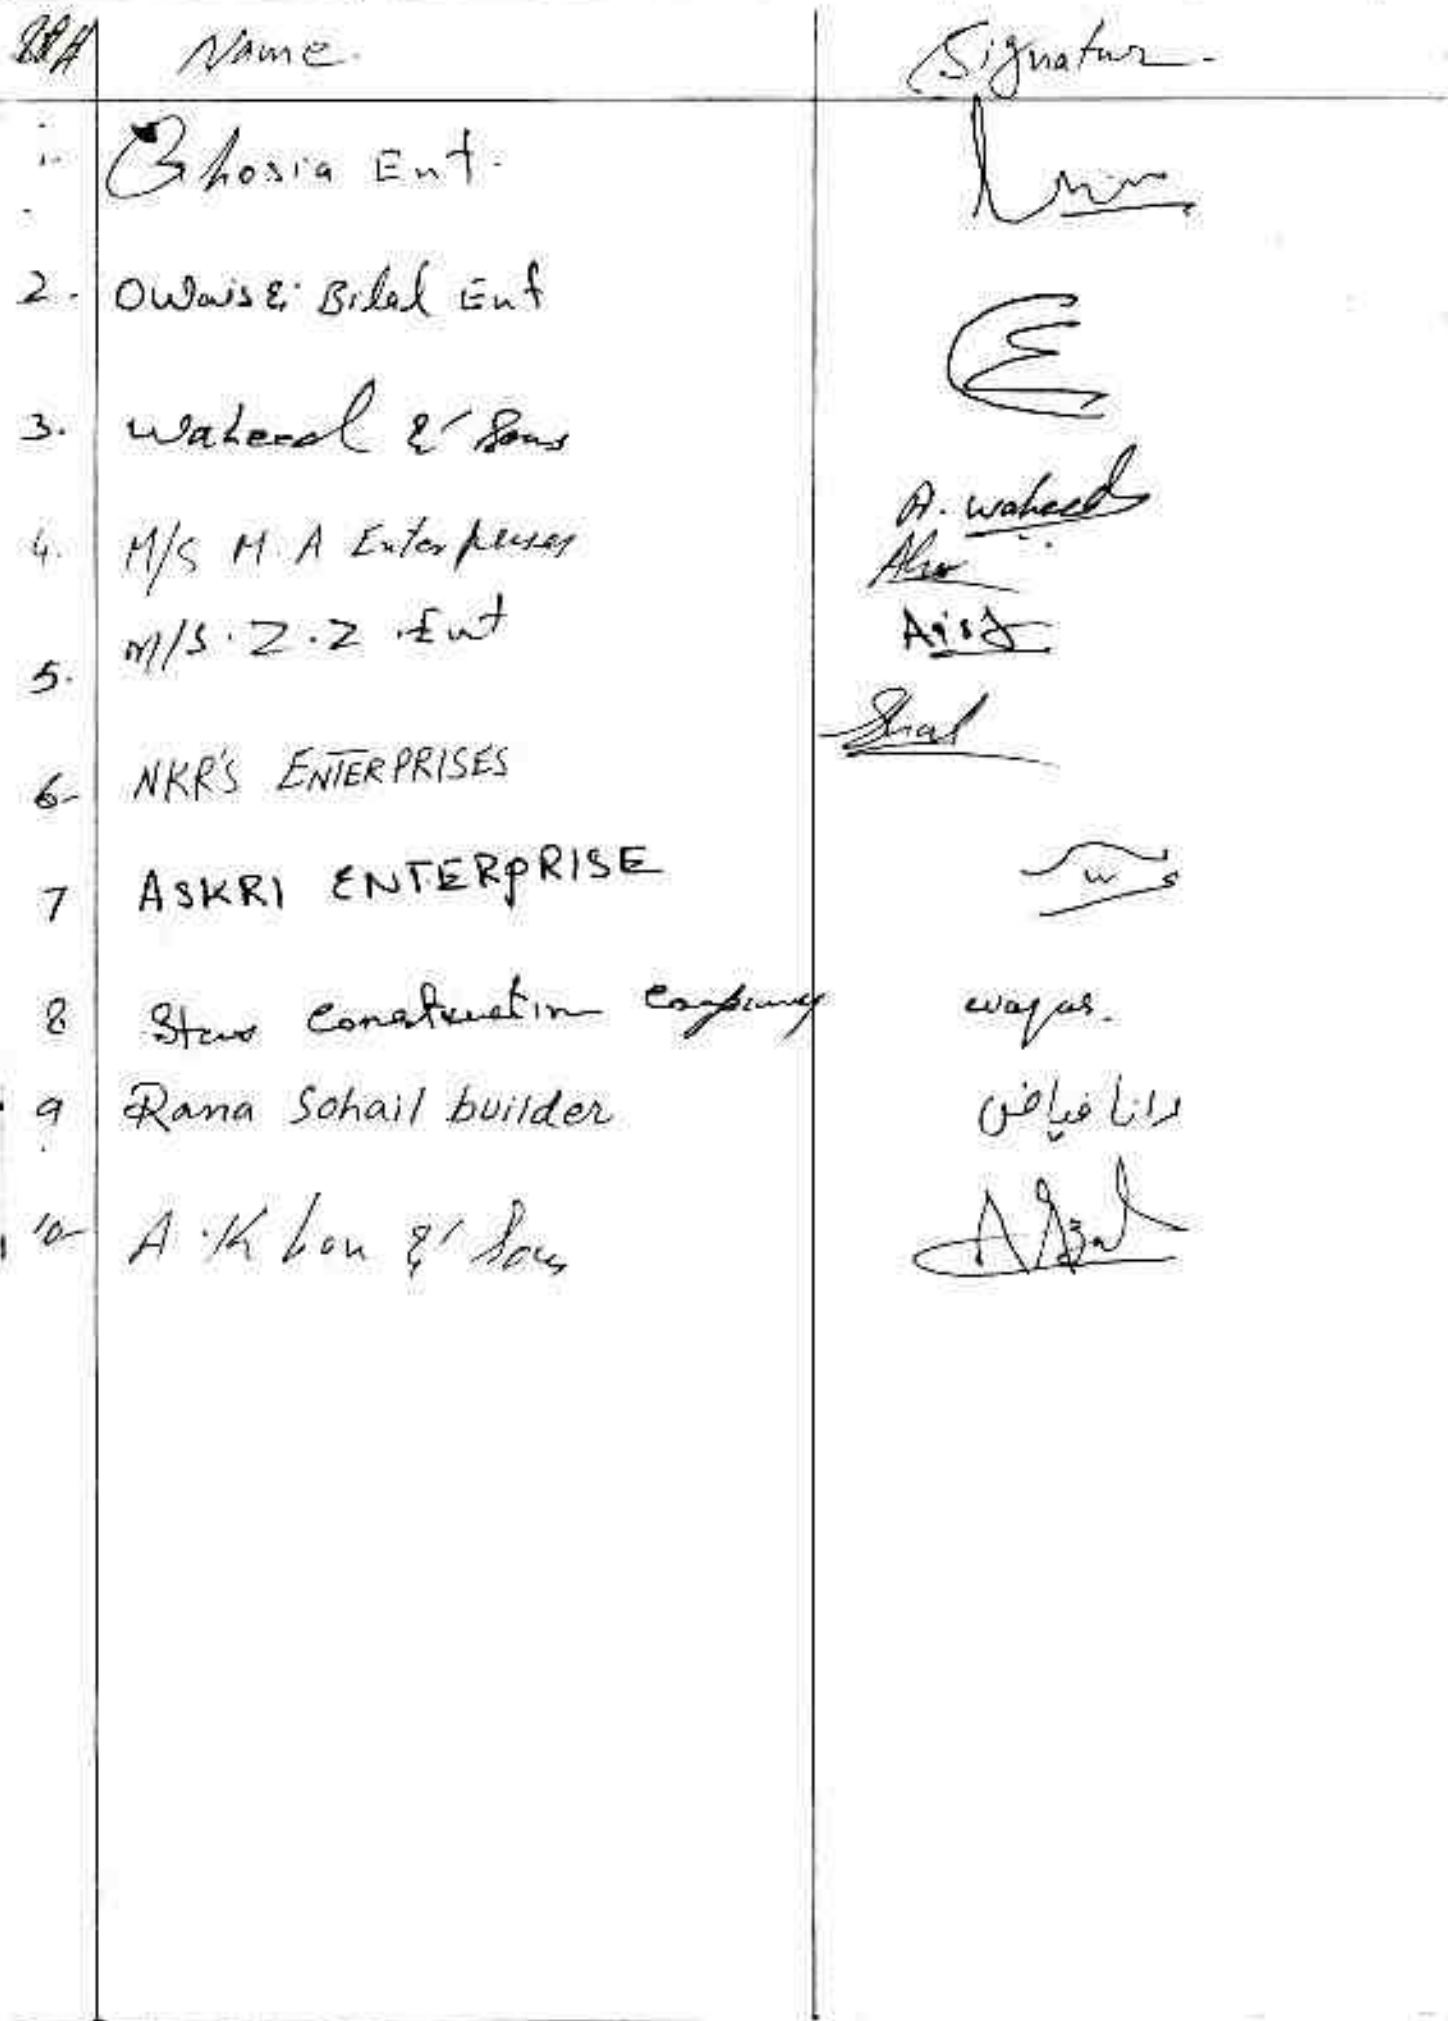 Name. Signatur.
1. Ghosia Ent.
2. Owais & Bilal Ent
3. Waheed & Sons
A. Waheed
4. M/S M.A Enterprises
M/S. Z.Z. Ent
5.
6- NKR'S ENTERPRISES
7 ASKRI ENTERPRISE
8 Star Construction Company waqas.
9 Rana Sohail builder رانا فیاض
10- A.Khan & Sons Afzal